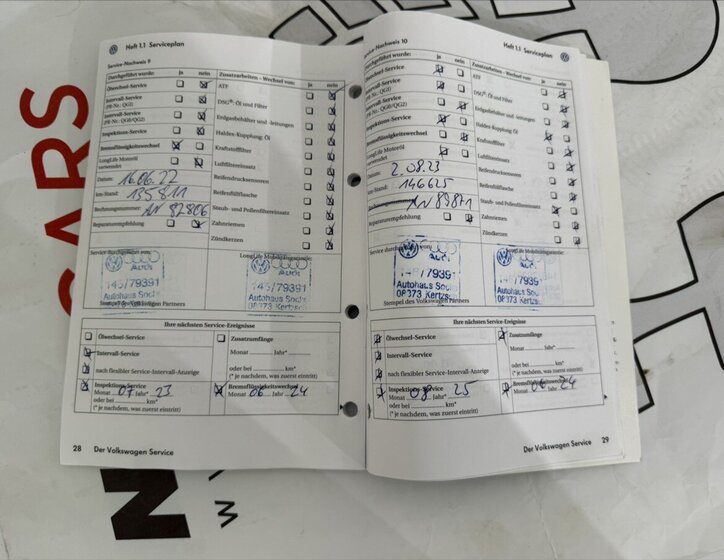 Heft 1.1 Serviceplan
Service-Nachweis 9
Durchgeführt wurde: ja nein
Ölwechsel-Service
Intervall-Service
(PR-Nr.: QG1)
Intervall-Service
(PR-Nr.: QG0/QG2)
Inspektions-Service
Bremsflüssigkeitswechsel
LongLife Motoröl
verwendet
Datum: 16.06.22
km-Stand: 135811
Rechnungsnummer: AN 82806
Reparaturempfehlung
Zusatzarbeiten - Wechsel von: ja nein
ATF
DSG®: Öl und Filter
Erdgasbehälter und -leitungen
Haldex-Kupplung: Öl
Kraftstofffilter
Luftfiltereinsatz
Reifendrucksensoren
Reifenfüllflasche
Staub- und Pollenfiltereinsatz
Zahnriemen
Zündkerzen
Service durchgeführt von:
Audi
145/79391
Autohaus
Stempel des Volkswagen Partners
LongLife Mobilitätsgarantie:
Audi
145/79391
Autohaus
08373 Kertzsc
Ihre nächsten Service-Ereignisse
Ölwechsel-Service
Intervall-Service
nach flexibler Service-Intervall-Anzeige
Zusatzumfänge
Monat Jahr*
oder bei km*
(* je nachdem, was zuerst eintritt)
Inspektions-Service
Monat 07 Jahr* 23
oder bei km*
(* je nachdem, was zuerst eintritt)
Bremsflüssigkeitswechsel
Monat 06 Jahr 24
28 Der Volkswagen Service
Heft 1.1 Serviceplan
Service-Nachweis 10
Durchgeführt wurde: ja nein
Ölwechsel-Service
Intervall-Service
(PR-Nr.: QG1)
Intervall-Service
(PR-Nr.: QG0/QG2)
Inspektions-Service
Bremsflüssigkeitswechsel
LongLife Motoröl
verwendet
Datum: 2.08.23
km-Stand: 146625
Rechnungsnummer: AN 89871
Reparaturempfehlung
Zusatzarbeiten - Wechsel von: ja nein
ATF
DSG®: Öl und Filter
Erdgasbehälter und -leitungen
Haldex-Kupplung: Öl
Kraftstofffilter
Luftfiltereinsatz
Reifendrucksensoren
Reifenfüllflasche
Staub- und Pollenfiltereinsatz
Zahnriemen
Zündkerzen
Service durchgeführt von:
Audi
145/79391
Autohaus
08373 Kertzsc
Stempel des Volkswagen Partners
LongLife Mobilitätsgarantie:
Audi
145/79391
Autohaus
08373 Kertzsc
Ihre nächsten Service-Ereignisse
Ölwechsel-Service
Intervall-Service
nach flexibler Service-Intervall-Anzeige
Zusatzumfänge
Monat Jahr*
oder bei km*
(* je nachdem, was zuerst eintritt)
Inspektions-Service
Monat 08 Jahr* 25
oder bei km*
(* je nachdem, was zuerst eintritt)
Bremsflüssigkeitswechsel
Monat 06 Jahr 24
Der Volkswagen Service 29
CARS
N
W